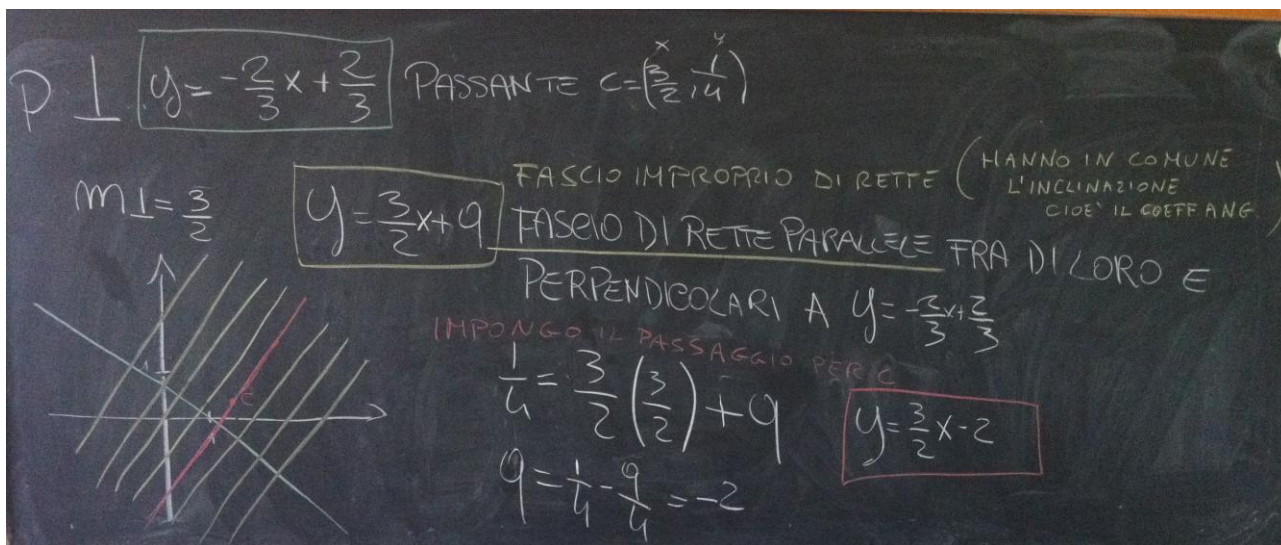 p ⊥ y = -2/3 x + 2/3 PASSANTE C = (3/2, 1/4)
x y
m⊥ = 3/2
y = 3/2 x + q
FASCIO IMPROPRIO DI RETTE (HANNO IN COMUNE
L'INCLINAZIONE
CIOE' IL COEFF ANG.)
FASCIO DI RETTE PARALLELE FRA DI LORO E
PERPENDICOLARI A y = -2/3 x + 2/3
IMPONGO IL PASSAGGIO PER C
1/4 = 3/2 (3/2) + q
q = 1/4 - 9/4 = -2
y = 3/2 x - 2
1
1
C